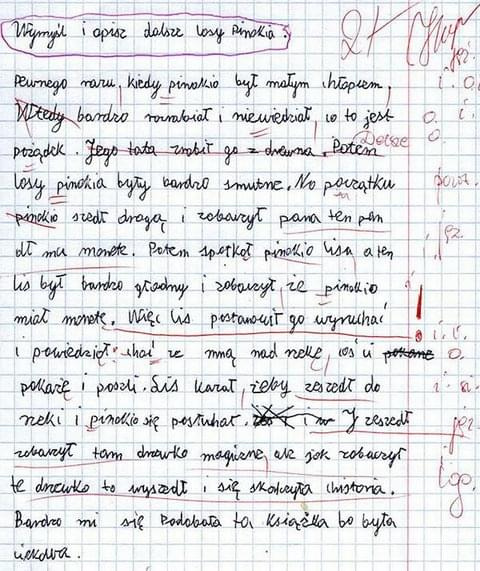 Wymyśl i opisz dalsze losy Pinokia.
2+
Pewnego razu, kiedy pinokio był małym chłopcem,
Wtedy bardzo rozrabiał i niewiedział, co to jest
pożądek. Jego tata zrobił go z drewna. Potem Dalsze
losy pinokia były bardzo smutne. Na początku
pinokio szedł drogą i zobaczył pana ten pan
dł mu monete. Potem spotkoł pinokio lisa a ten
lis był bardzo głodny i zobaczył, że pinokio
miał monetę. Więc lis postanowił go wyruchać
i powiedział: chać ze mną nad rzekę, coś ci
pokażę i poszli. Lis kazał, żeby zeszedł do
rzeki i pinokio się posłuchał. i J zeszedł
zobaczył tam drzewko magiczne, ale jak zobaczył
te drzewko to wyszedł i się skończyła chistoria.
Bardzo mi się Podobała ta książka bo była
ciekawa.